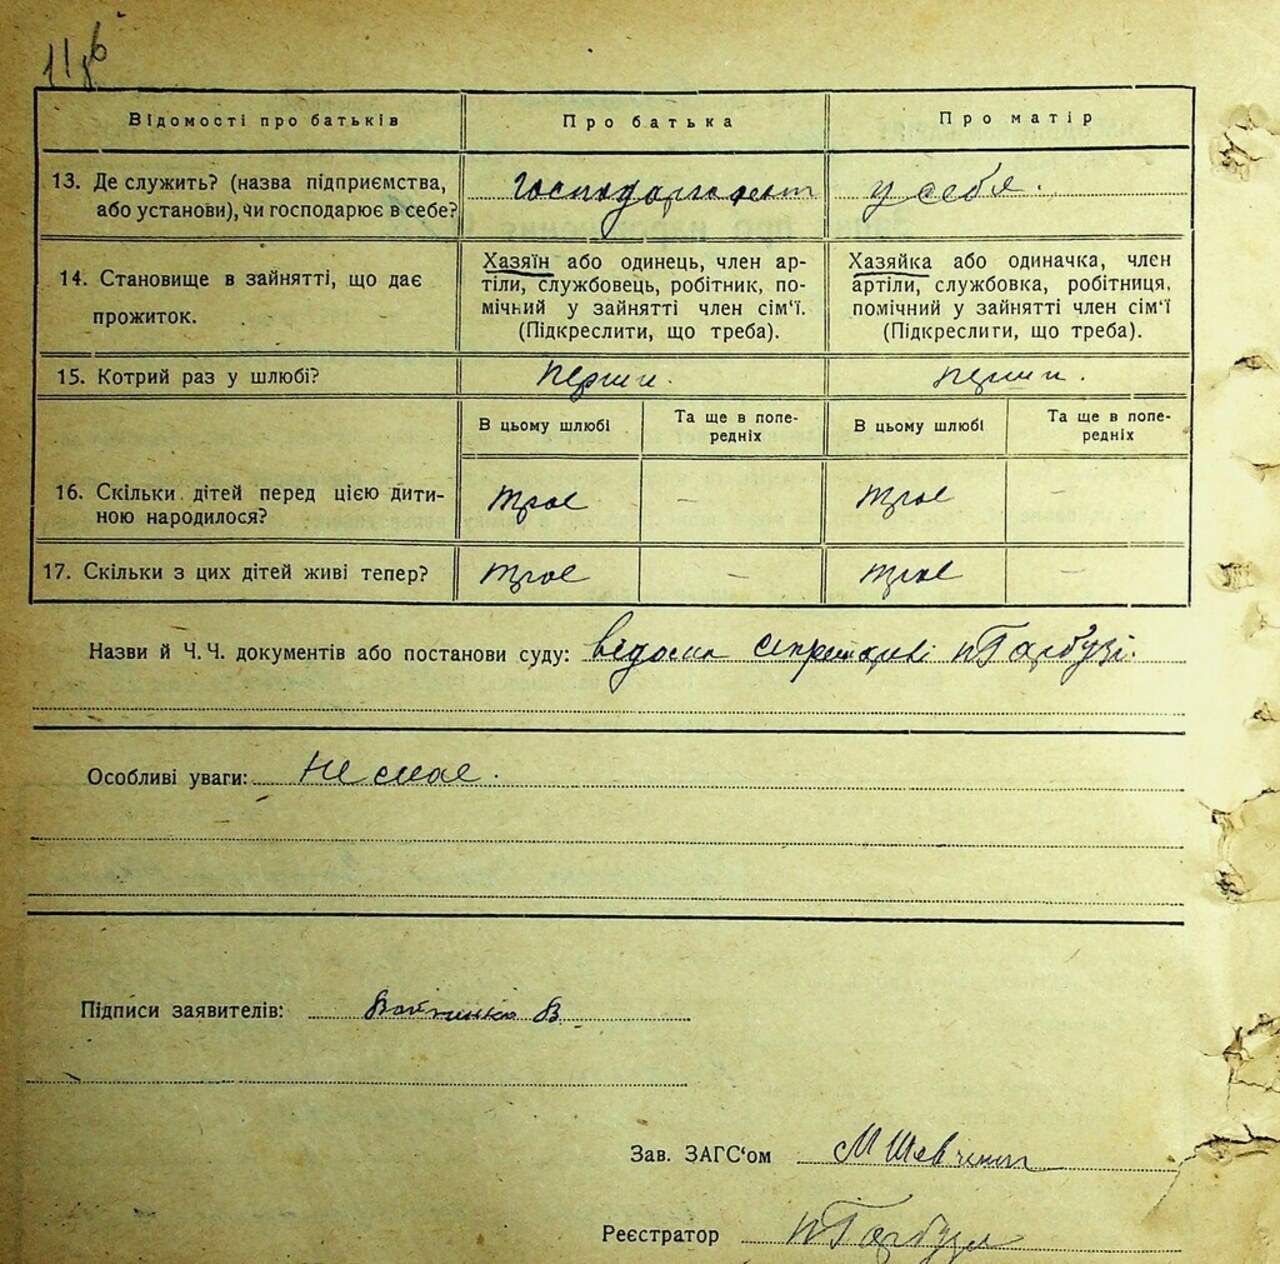 Відомості про батьків Про батька Про матір
13. Де служить? (назва підприємства, або установи), чи господарює в себе? у себя.
14. Становище в зайнятті, що дає прожиток.
Хазяїн або одинець, член ар-
тіли, службовець, робітник, по-
мічний у зайнятті член сім'ї.
(Підкреслити, що треба).
Хазяйка або одиначка, член
артіли, службовка, робітниця,
помічний у зайнятті член сім'ї
(Підкреслити, що треба).
15. Котрий раз у шлюбі? перший. перший.
В цьому шлюбі Та ще в попе-
редніх В цьому шлюбі Та ще в попе-
редніх
16. Скільки дітей перед цією дити-
ною народилося? троє — троє —
17. Скільки з цих дітей живі тепер? троє — троє —
Назви й Ч. Ч. документів або постанови суду: відома секретарві пГарбузі.
Особливі уваги: Не має.
Підписи заявителів:
Зав. ЗАГС'ом М Шевченко
Реєстратор пГарбуз